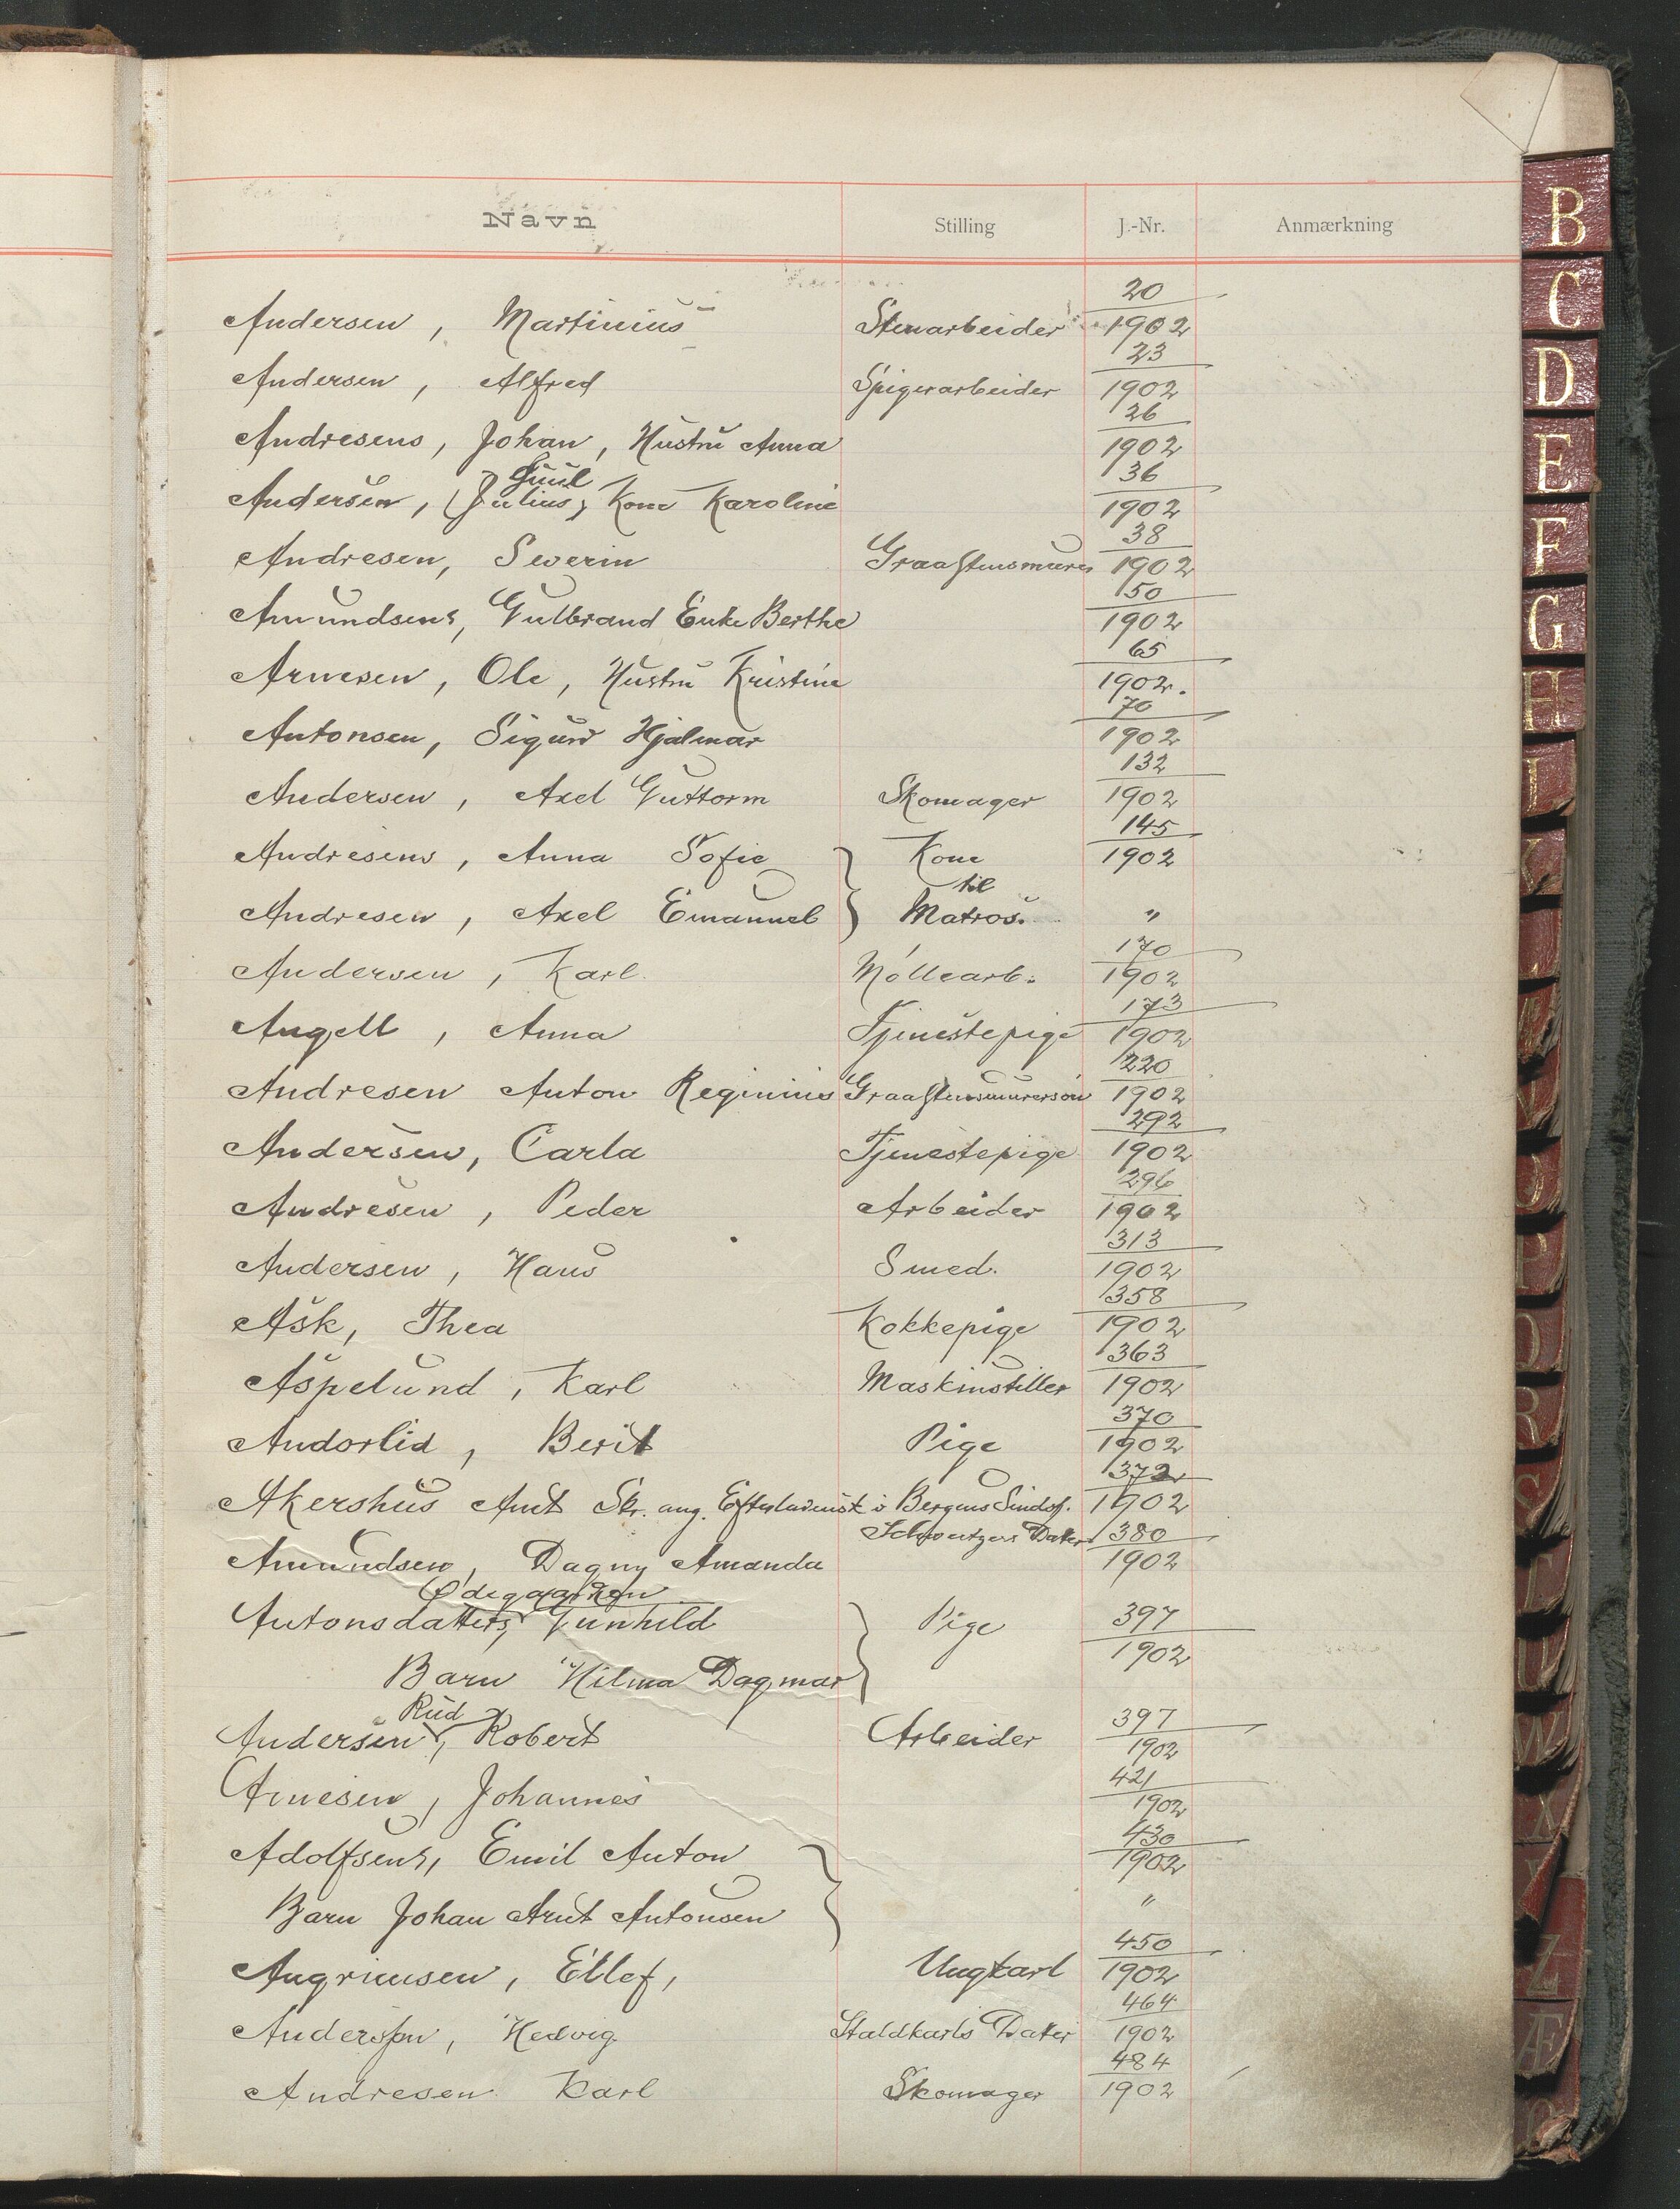 Navn Stilling J.-Nr. Anmærkning
Andersen, Martinius Stenarbeider 20/1902
Andersen, Alfred Spigerarbeider 23/1902
Andresens, Johan, Hustru Anna 26/1902
Juul
Andersen, (Julius) Kone Karoline 36/1902
Andresen, Severin Graastensmurer 38/1902
Amundsens, Gulbrand Enke Berthe 50/1902
Arnesen, Ole, Hustru Kristine 65/1902.
Antonsen, Sigurd Hjalmar 70/1902
Andersen, Axel Guttorm Skomager 132/1902
Andresens, Anna Sofie Kone 145/1902
til
Andresen, Axel Emanuel Matros. "
Andersen, Karl Möllearb. 170/1902
Angell, Anna Tjenestepige 173/1902
Andresen Anton Reginius Graastensmurersön 220/1902
Andersen, Carla Tjenestepige 292/1902
Andresen, Peder Arbeider 296/1902
Andersen, Hans Smed. 313/1902
Ask, Thea Kokkepige 358/1902
Aspelund, Karl Maskinstiller 363/1902
Andorlid, Berit Pige 370/1902
Akershus Amt Skr. ang. Efterladensk i Bergens Sindsf. 372/1902
Schweitzers Datter 380/1902
Amundsen, Dagny Amanda
Ødegaarden
Antonsdatters, Gunhild Pige 397/1902
Barn Hilma Dagmar
Rud
Andersen, Robert Arbeider 397/1902
Arnesen, Johannes 421/1902
Adolfsens, Emil Anton 430/1902
Barn Johan Arnt Antonsen "
Angrimsen, Ellef, Ungkarl 450/1902
Andersson, Hedvig Staldkarls Datter 464/1902
Andresen Karl Skomager 484/1902
B
C
D
E
F
G
H
I
K
L
M
N
O
P
Q
R
S
T
U
W
X
Z
Æ